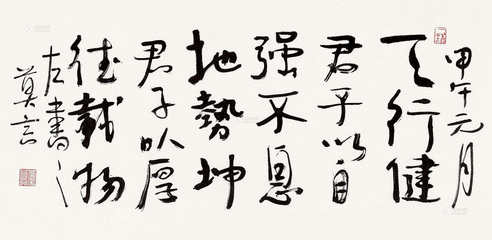 甲午元月
天行健
君子以自
强不息
地势坤
君子以厚
德载物
左书
莫言